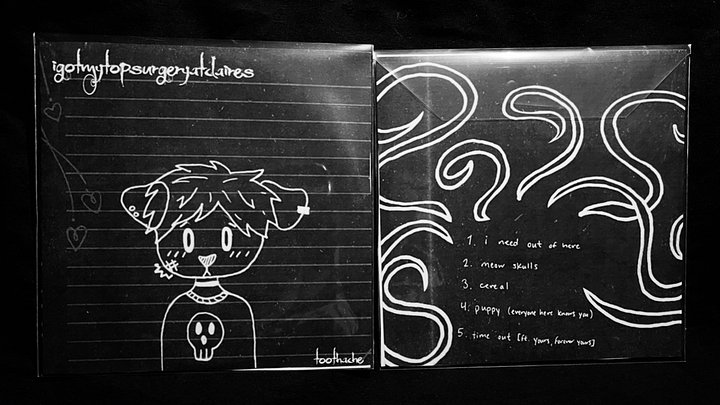 igotmytopsurgeryatclaires
toothache
1. i need out of here
2. meow skulls
3. cereal
4. puppy (everyone here knows you)
5. time out [ft. yours, forever yours]